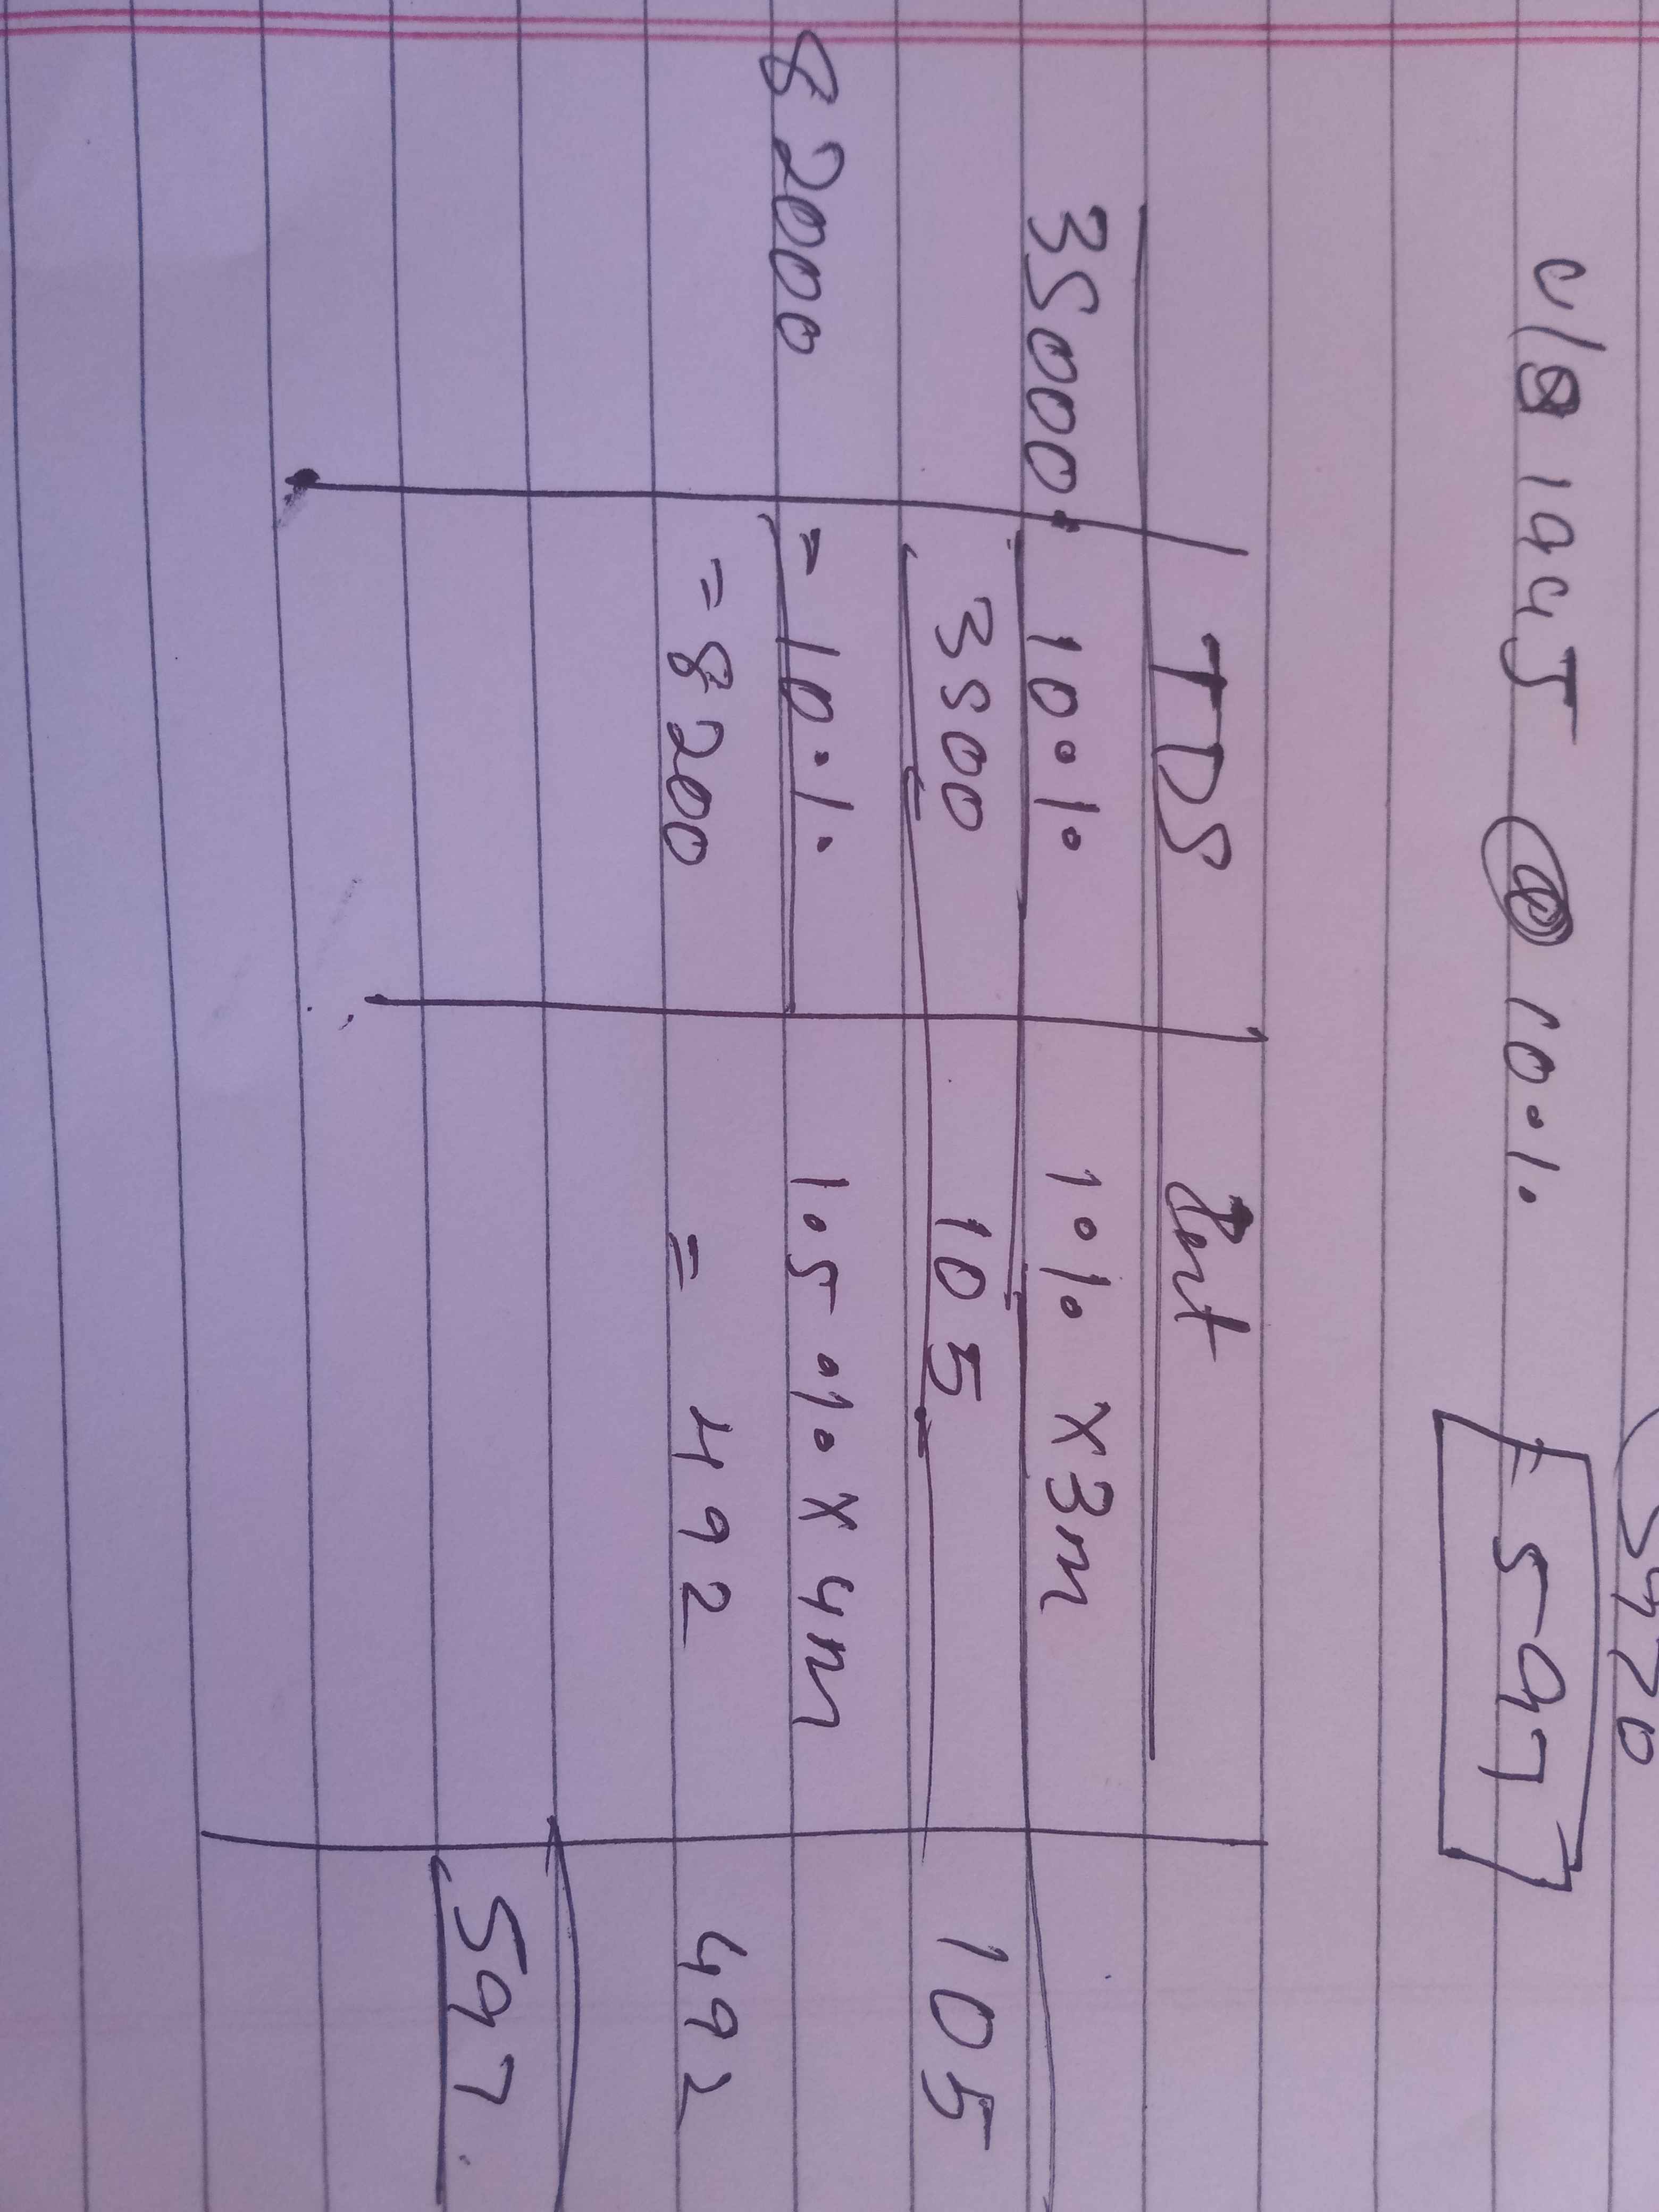 5420
u/s 194J @ 10% 597
TDS Int
35000 10% 1% x 3m
3500 105 105
82000 = 10% 1.5% x 4m
= 8200 = 492 492
597